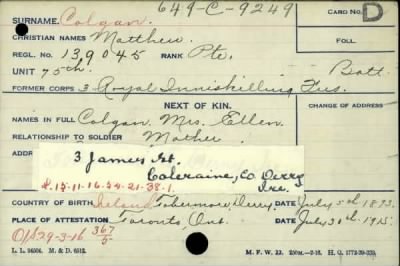 649-C-9249
CARD NO. D
SURNAME. Colgan.
CHRISTIAN NAMES Matthew
FOLL.
REGL. NO. 139045 RANK Pte.
UNIT 75th. Batt.
FORMER CORPS 3 Royal Inniskilling Fus.
NEXT OF KIN.
CHANGE OF ADDRESS
NAMES IN FULL Colgan, Mrs. Ellen.
RELATIONSHIP TO SOLDIER Mother
ADDR
3 James St.
Coleraine, Co Derry
Ire.
COUNTRY OF BIRTH Ireland Tobermore, Derry. DATE July 5th 1893.
PLACE OF ATTESTATION Toronto, Ont. DATE July 31st 1915.
O/S 29-3-16 367/5
L. L. M. & D.
M. F. W. 22.